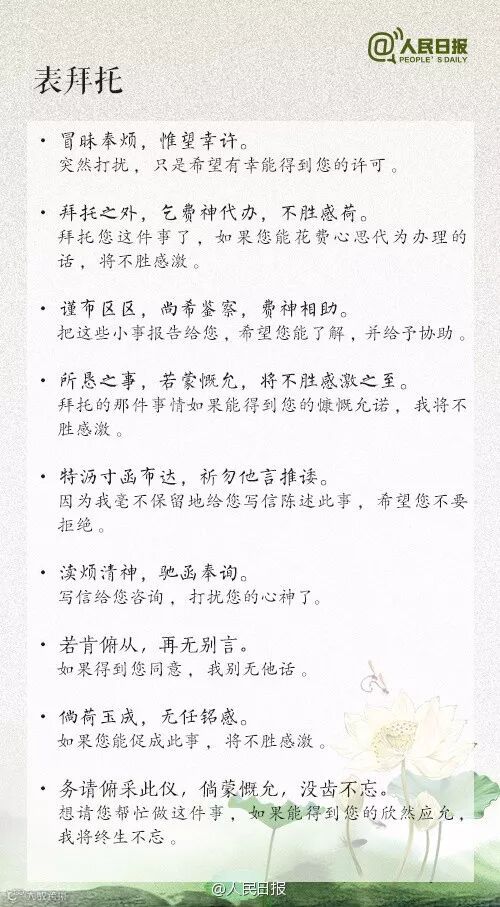 @人民日报
PEOPLE'S DAILY
表拜托
• 冒昧奉烦，惟望幸许。
突然打扰，只是希望有幸能得到您的许可。
• 拜托之外，乞费神代办，不胜感荷。
拜托您这件事了，如果您能花费心思代为办理的
话，将不胜感激。
• 谨布区区，尚希鉴察，费神相助。
把这些小事报告给您，希望您能了解，并给予协助。
• 所恳之事，若蒙慨允，将不胜感激之至。
拜托的那件事情如果能得到您的慷慨允诺，我将不
胜感激。
• 特沥寸函布达，祈勿他言推诿。
因为我毫不保留地给您写信陈述此事，希望您不要
拒绝。
• 渎烦清神，驰函奉询。
写信给您咨询，打扰您的心神了。
• 若肯俯从，再无别言。
如果得到您同意，我别无他话。
• 倘荷玉成，无任铭感。
如果您能促成此事，将不胜感激。
• 务请俯采此仪，倘蒙慨允，没齿不忘。
想请您帮忙做这件事，如果能得到您的欣然应允，
我将终生不忘。
@人民日报